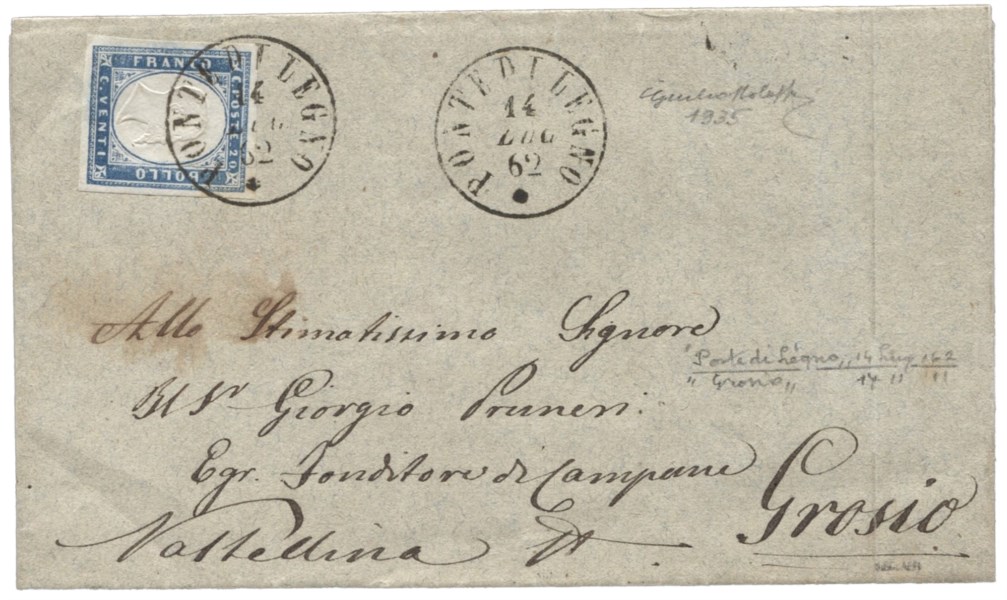 FRANCO
C. POSTE 20
C. VENTI
BOLLO
PONTE DI LEGNO
14
LUG
62
PONTE DI LEGNO
14
LUG
62
1935
Allo Stimatissimo Signore
Il Sr Giorgio Pruneri
Egr. Fonditore di Campane
Valtellina Grosio
"Ponte di Légno,, 14 Lug 62
" Grosio,, 17 " "